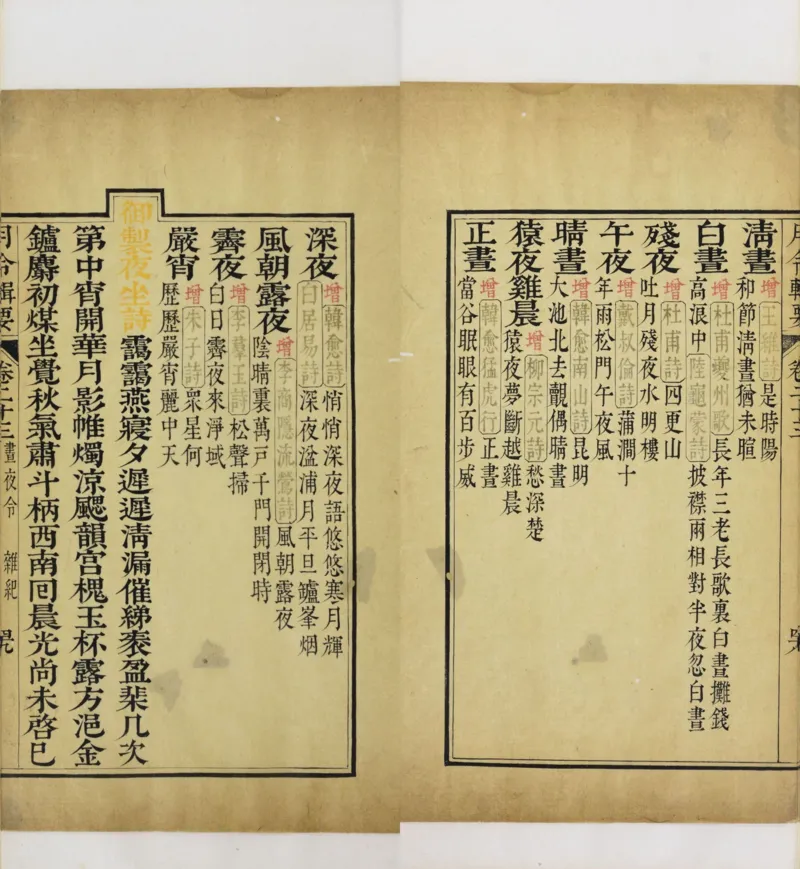 月令輯要 卷二十三
清晝 增 王維詩 是時陽
和節清晝猶未暄
白晝 增 杜甫夔州歌 長年三老長歌裏白晝攤錢
高浪中 陸龜蒙詩 披襟兩相對半夜忽白晝
殘夜 增 杜甫詩 四更山
吐月殘夜水明樓
午夜 增 戴叔倫詩 蒲澗十
年雨松門午夜風
晴晝 增 韓愈南山詩 昆明
大池北去覿偶晴晝
猿夜雞晨 增 柳宗元詩 愁深楚
猿夜夢斷越雞晨
正晝 增 韓愈猛虎行 正晝
當谷眠眼有百步威
深夜 增 韓愈詩 悄悄深夜語悠悠寒月輝
白居易詩 深夜湓浦月平旦鑪峯烟
風朝露夜 增 李商隱流鶯詩 風朝露夜
陰晴裏萬戶千門開閉時
霽夜 增 李羣玉詩 松聲掃
白日霽夜來淨域
嚴宵 增 朱子詩 衆星何
歷歷嚴宵麗中天
御製夜坐詩 靄靄燕寢夕遲遲清漏催綈袠盈棐几次
第中宵開華月影帷燭涼颸韻宮槐玉杯露方浥金
鑪麝初煤坐覺秋氣肅斗柄西南囘晨光尚未啓已
月令輯要 卷二十三 晝夜令 雜紀